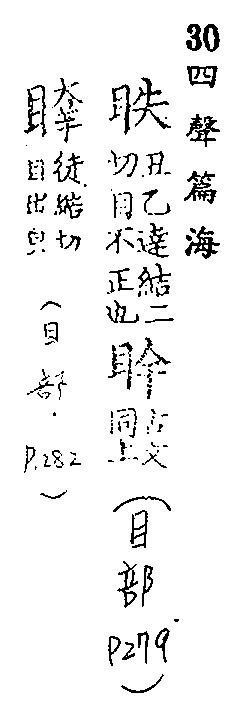 30 四聲篇海
眣 丑乙達結二切目不正也 古文同上 (目部 P279)
徒結切目出皃 (目部. P.282)